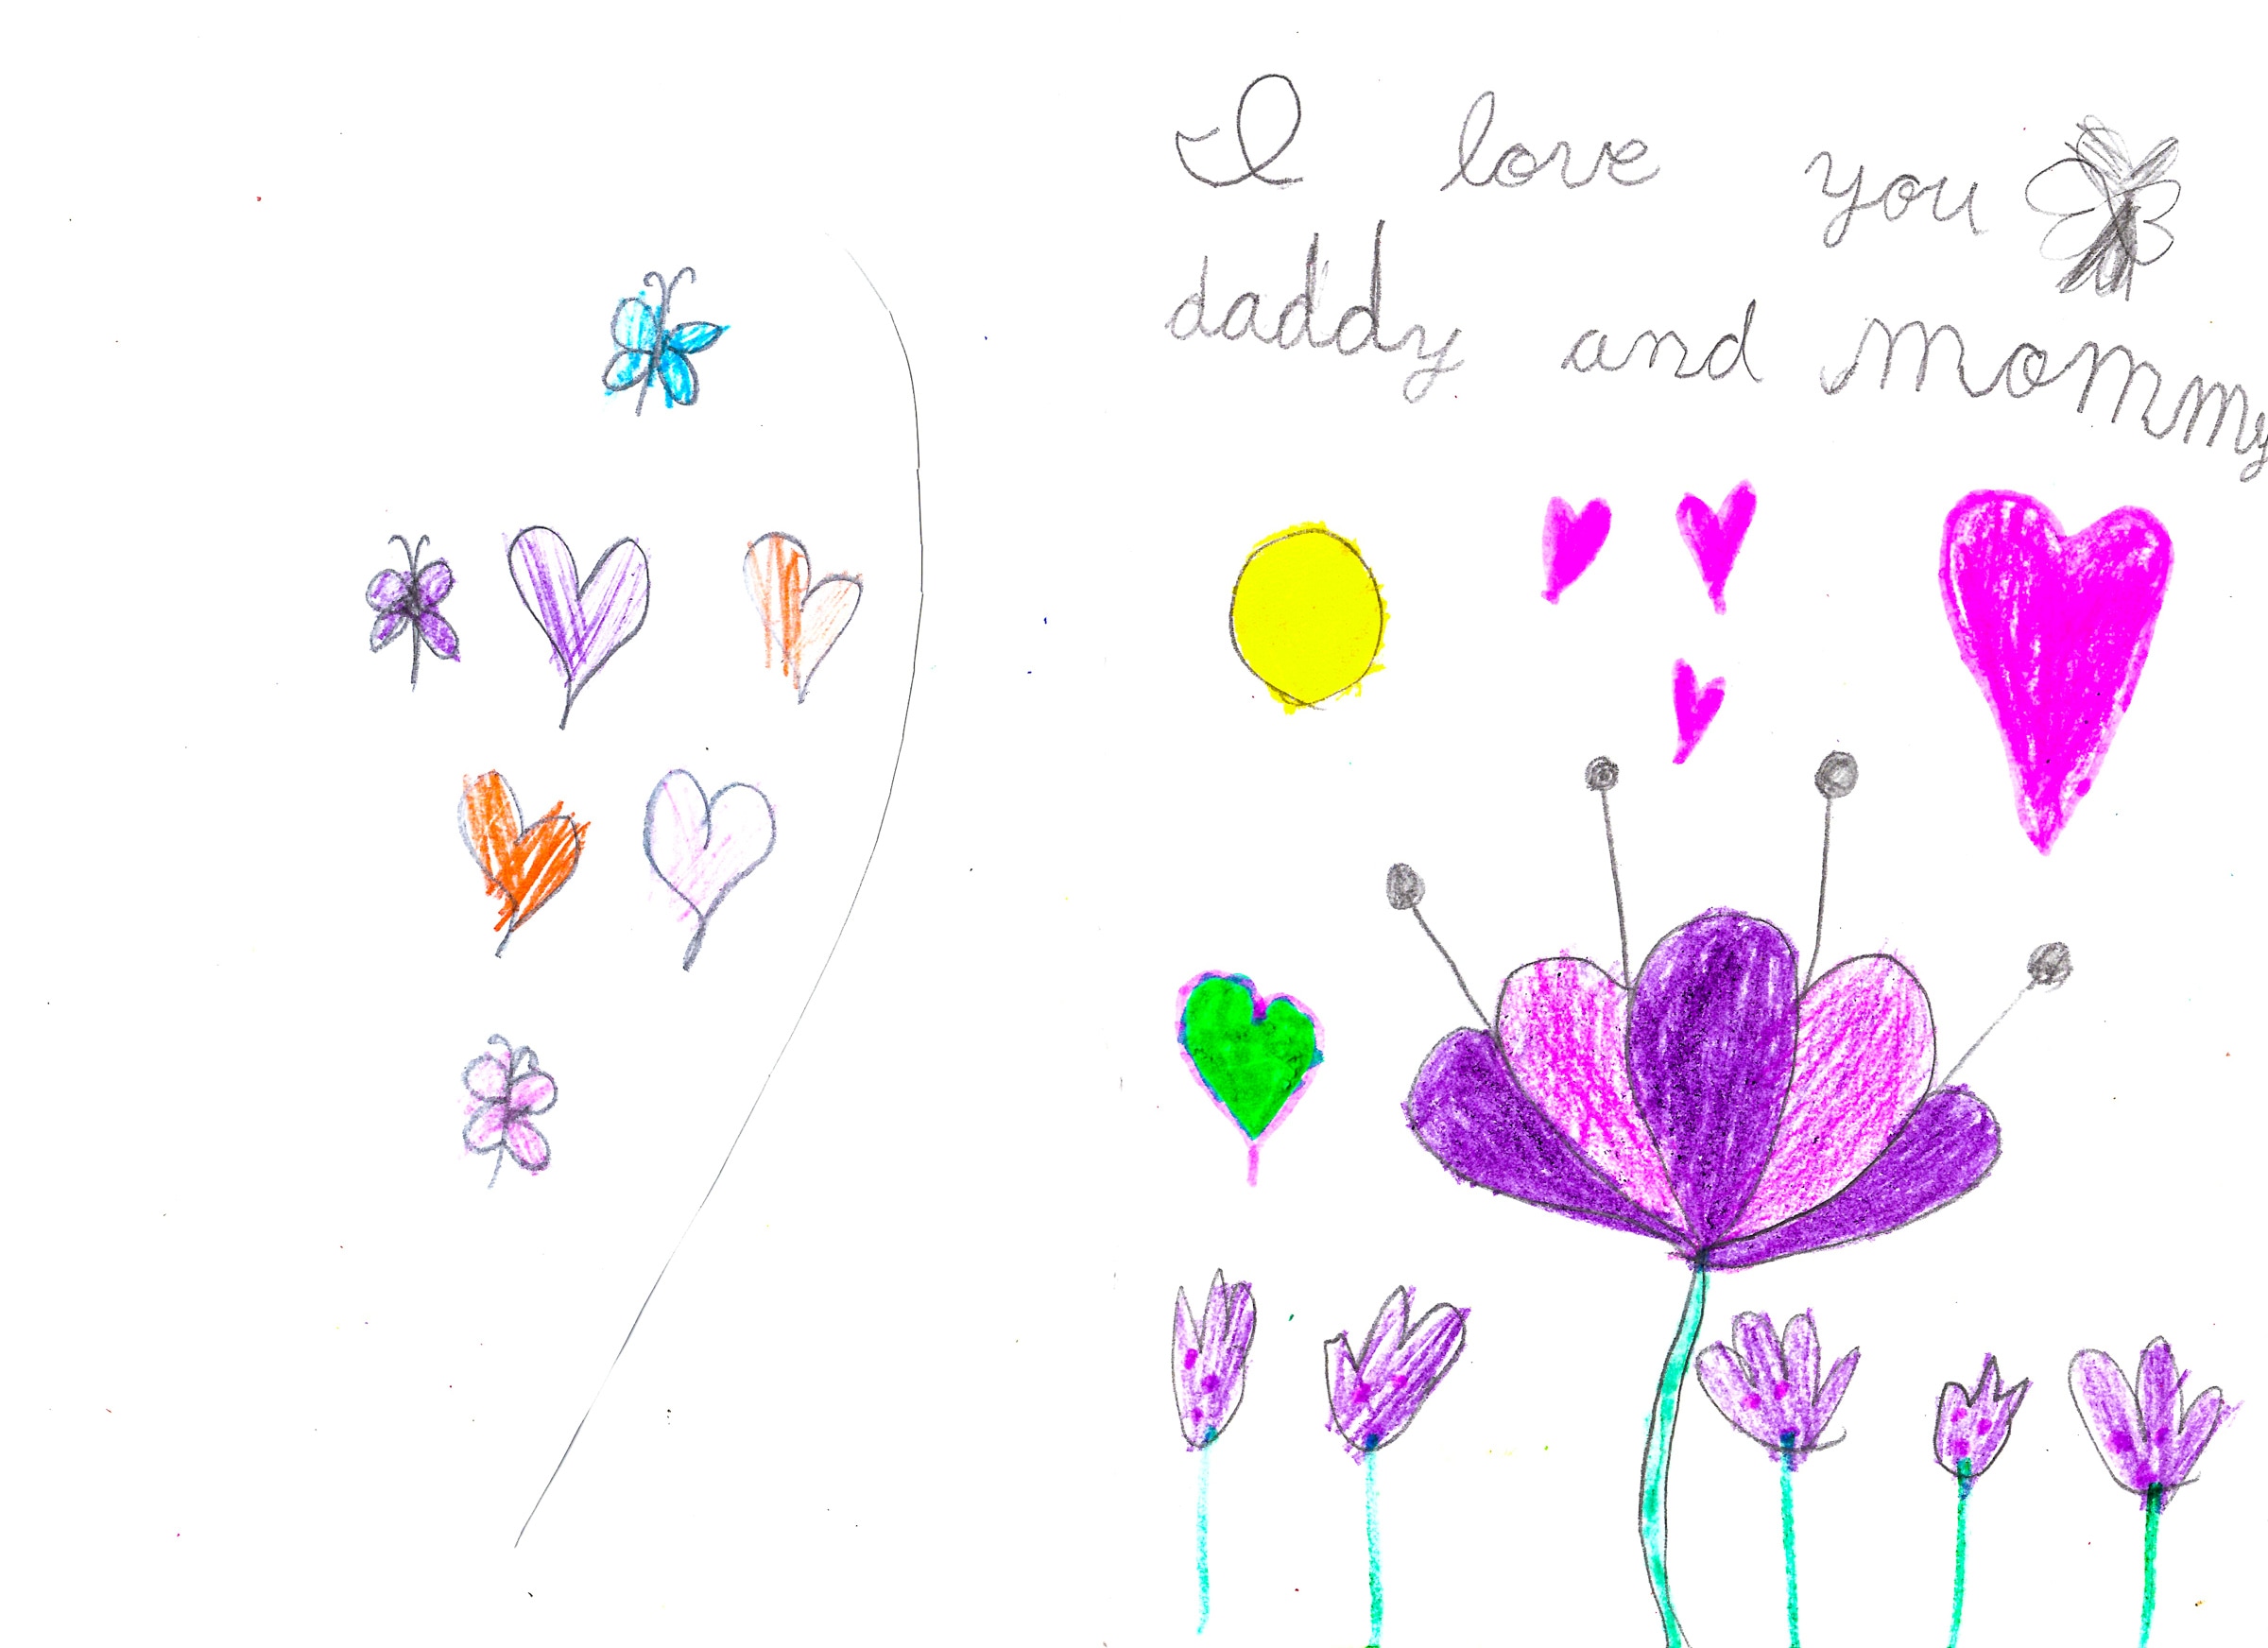 I love you
daddy and mommy